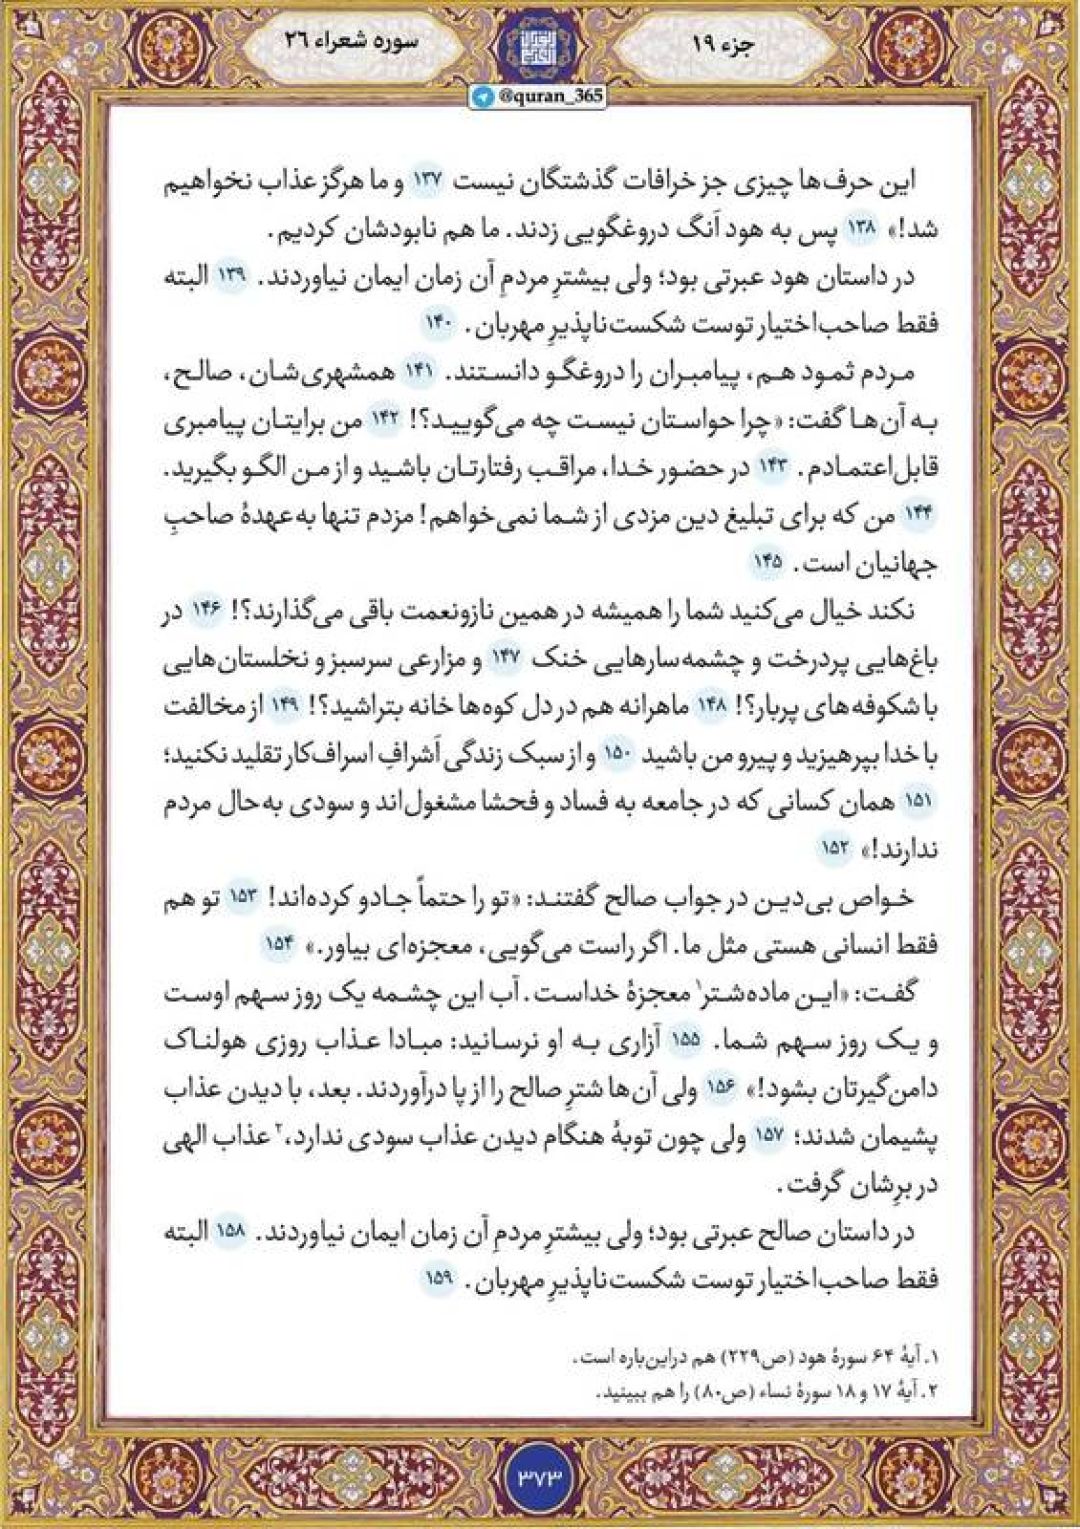 جزء ۱۹
سوره شعراء ۲۶
@quran_365
این حرف‌ها چیزی جز خرافات گذشتگان نیست ۱۳۷ و ما هرگز عذاب نخواهیم
شد!» ۱۳۸ پس به هود اَنگ دروغگویی زدند. ما هم نابودشان کردیم.
در داستان هود عبرتی بود؛ ولی بیشترِ مردمِ آن زمان ایمان نیاوردند. ۱۳۹ البته
فقط صاحب‌اختیار توست شکست‌ناپذیرِ مهربان. ۱۴۰
مردم ثمود هم، پیامبران را دروغگو دانستند. ۱۴۱ همشهری‌شان، صالح،
به آن‌ها گفت: «چرا حواستان نیست چه می‌گویید؟! ۱۴۲ من برایتان پیامبری
قابل‌اعتمادم. ۱۴۳ در حضور خدا، مراقب رفتارتان باشید و از من الگو بگیرید.
۱۴۴ من که برای تبلیغ دین مزدی از شما نمی‌خواهم! مزدم تنها به‌عهدهٔ صاحبِ
جهانیان است. ۱۴۵
نکند خیال می‌کنید شما را همیشه در همین نازونعمت باقی می‌گذارند؟! ۱۴۶ در
باغ‌هایی پردرخت و چشمه‌سارهایی خنک ۱۴۷ و مزارعی سرسبز و نخلستان‌هایی
با شکوفه‌های پربار؟! ۱۴۸ ماهرانه هم در دل کوه‌ها خانه بتراشید؟! ۱۴۹ از مخالفت
با خدا بپرهیزید و پیرو من باشید ۱۵۰ و از سبک زندگی اَشرافِ اسراف‌کار تقلید نکنید؛
۱۵۱ همان کسانی که در جامعه به فساد و فحشا مشغول‌اند و سودی به‌حال مردم
ندارند!» ۱۵۲
خواص بی‌دین در جواب صالح گفتند: «تو را حتماً جادو کرده‌اند! ۱۵۳ تو هم
فقط انسانی هستی مثل ما. اگر راست می‌گویی، معجزه‌ای بیاور.» ۱۵۴
گفت: «این ماده‌شتر۱ معجزهٔ خداست. آب این چشمه یک روز سهم اوست
و یک روز سهم شما. ۱۵۵ آزاری به او نرسانید: مبادا عذاب روزی هولناک
دامن‌گیرتان بشود!» ۱۵۶ ولی آن‌ها شترِ صالح را از پا درآوردند. بعد، با دیدن عذاب
پشیمان شدند؛ ۱۵۷ ولی چون توبهٔ هنگام دیدن عذاب سودی ندارد،۲ عذاب الهی
در برِشان گرفت.
در داستان صالح عبرتی بود؛ ولی بیشترِ مردمِ آن زمان ایمان نیاوردند. ۱۵۸ البته
فقط صاحب‌اختیار توست شکست‌ناپذیرِ مهربان. ۱۵۹
۱. آیهٔ ۶۴ سورهٔ هود (ص۲۲۹) هم دراین‌باره است.
۲. آیهٔ ۱۷ و ۱۸ سورهٔ نساء (ص۸۰) را هم ببینید.
۳۷۳